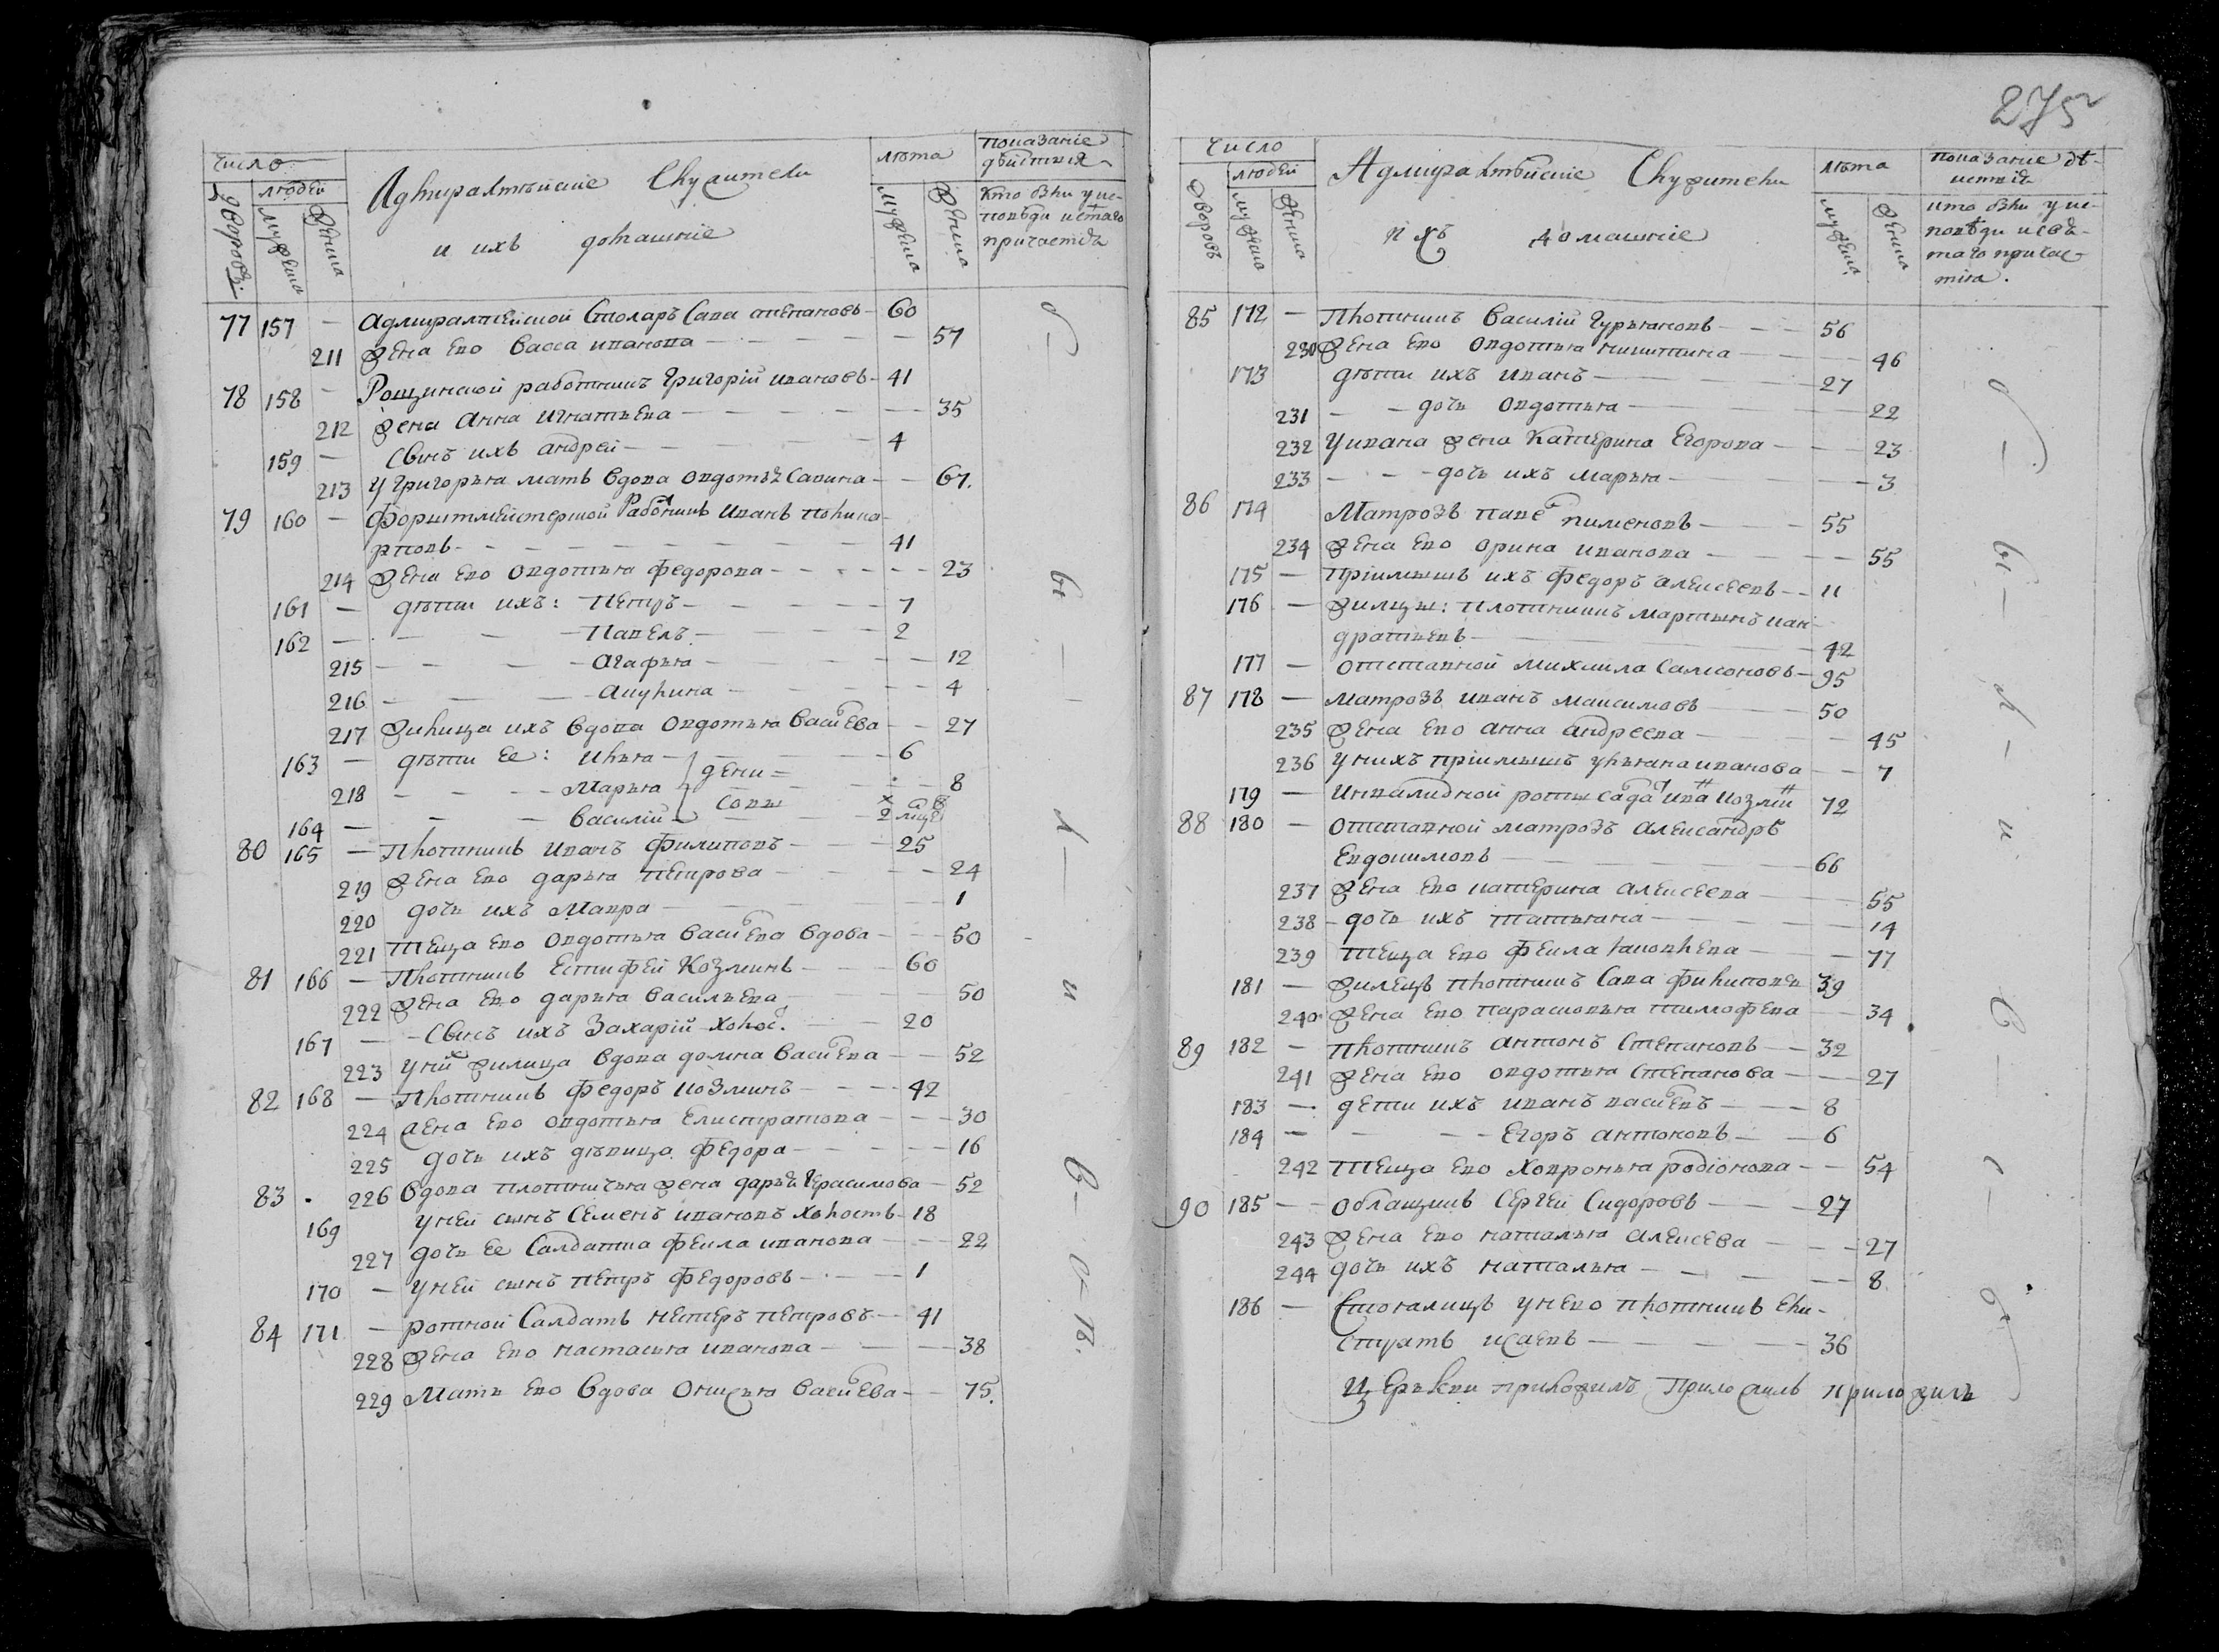 число
людей
дворовъ
мужеска
женска
Адмиралтейскіе Служители
и ихъ домашніе
лѣта
мужеска
женска
показаніе
дѣйствія
кто были у ис-
повѣди и стаго
причастія
77 157 — Адмиралтейской Столяръ Сава степановъ - 60
211 жена ево Васса иванова — — — 57
78 158 — Рощинской работникъ Григорій ивановъ - 41
212 жена анна игнатьева — — — 35
159 — Сынъ ихъ андрей — — 4
213 у Григорья мать вдова овдотья Савина — 67.
79 160 — Форштмейстерской Работникъ иванъ полика-
рповъ - — — — 41
214 жена ево овдотья федорова — — — 23
161 — дѣти ихъ: Петръ — — 7
162 — — — Павелъ — — 2
215 — — — агафья — — 12
216 — — — акулина — — 4
217 жилица ихъ вдова овдотья Васиева — 27
163 — дѣти ее: илья — — 6
218 — — Марья — — 8
164 — — Василій — — 2
80 165 — плотникъ иванъ филиповъ — 25
219 жена ево дарья петрова — — 24
220 дочь ихъ Мавра — — 1
221 теща ево овдотья Васиева вдова — 50
81 166 — плотникъ Естифей Козминъ — 60
222 жена ево дарья васильева — — 50
167 — Сынъ ихъ Захарій холос. — 20
223 у них жилица вдова домна Васиева — 52
82 168 — плотникъ федоръ козминъ — 42
224 жена ево овдотья Елистратова — 30
225 дочь ихъ дѣвица федора — — 16
83 . 226 вдова плотничья жена дарья Герасимова — 52
169 у ней сынъ Семенъ ивановъ холостъ - 18
227 дочь ее Салдатка фекла иванова — 22
170 — у ней сынъ петръ федоровъ — 1
84 171 — ротной Салдатъ нестеръ петровъ — 41
228 жена ево настасья иванова — — 38
229 Мать ево вдова Онисья васиева — 75.
б — ы — л — и в — о — в.
275
число
людей
дворовъ
мужеска
женска
Адмиралтейскіе Служители
и ихъ домашніе
лѣта
мужеска
женска
показаніе дѣ-
иствія
кто были у ис-
повѣди и свя-
таго причас-
тія.
85 172 — плотникъ василій Гурьяновъ — 56
230 жена ево овдотья никитина — — 46
173 дѣти ихъ иванъ — — 27
231 — — дочь овдотья — — 22
232 у ивана жена Катерина Егорова — 23
233 — — дочь ихъ марья — — 3
86 174 Матрозъ паве пименовъ — 55
234 жена ево орина иванова — — 55
175 — пріимышъ ихъ федоръ алексеевъ — 11
176 — жилцы: плотникъ мартынъ кан-
дратьевъ — — 42
177 — отставной михаила Самсоновъ — 95
87 178 — матрозъ иванъ максимовъ — 50
235 жена ево анна андреева — — 45
236 у нихъ пріимышъ ульяна иванова — 7
179 — инвалидной роты сада ива козми 72
88 180 — отставной матрозъ александръ
Евдокимовъ — — 66
237 жена ево катерина алексеева — 55
238 — дочь ихъ татьяна — — 14
239 теща ево фекла яковлева — — 77
181 — жилецъ плотникъ Сава филиповъ 39
240 жена ево парасковья тимофева — 34
89 182 — плотникъ антонъ Степановъ — 32
241 жена ево овдотья степанова — 27
183 — дети ихъ иванъ васиевъ — 8
184 — — — Егоръ антоновъ — 6
242 теща ево ховронья родіонова — 54
90 185 — облащикъ Сергей Сидоровъ — 27
243 жена ево наталья алексева — 27
244 дочь ихъ наталья — — 8
186 — у нево плотникъ Ели-
стратъ исаевъ — — 36
б — ы — л — и в — с — ѣ